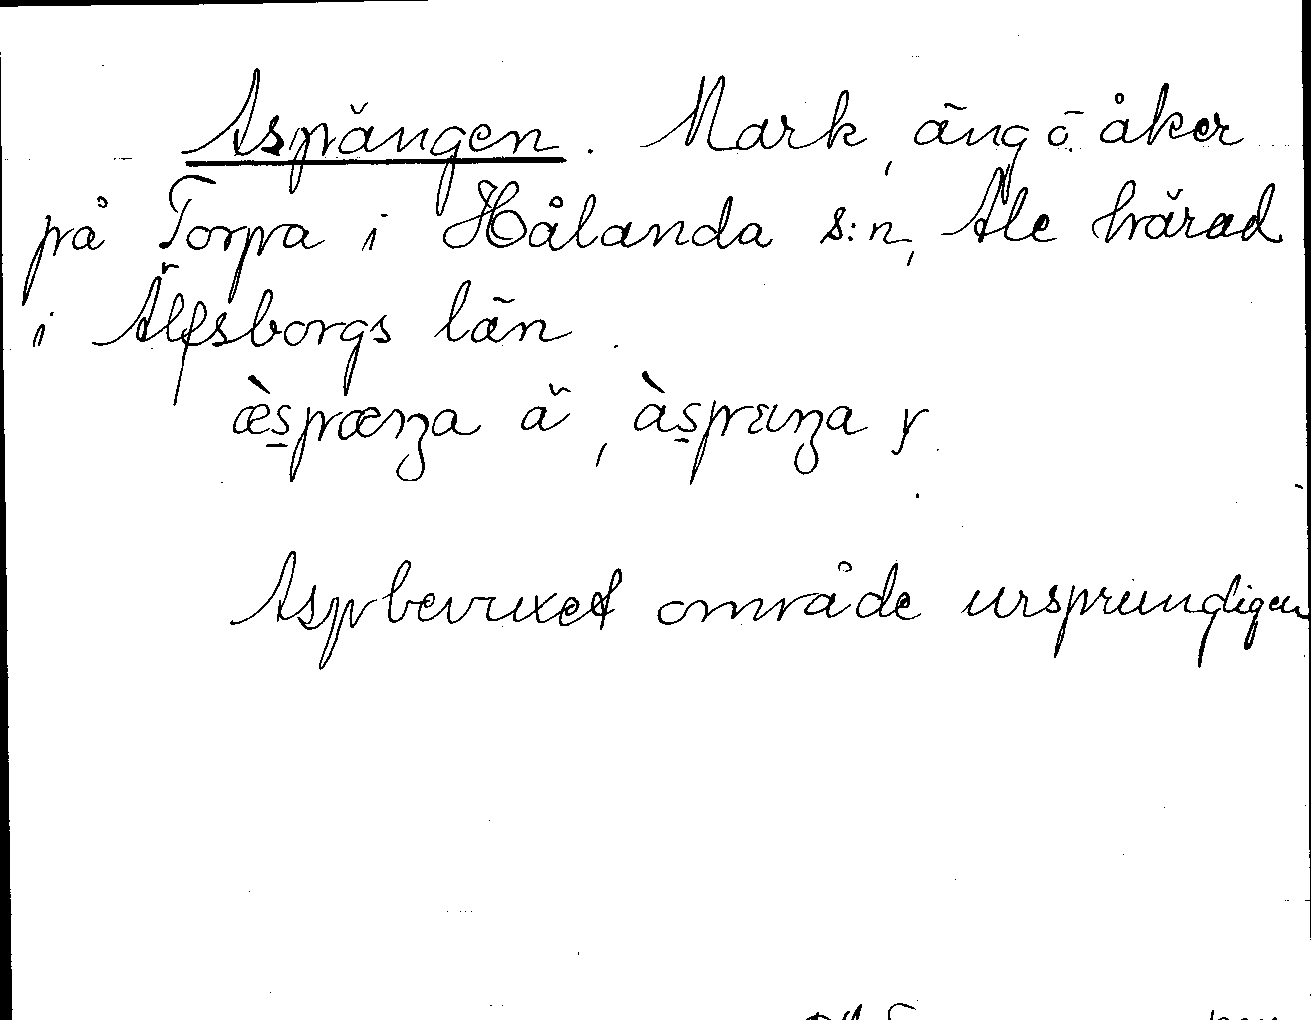 Aspängen. Mark, äng o. åker
på Torpa i Hålanda s:n, Ale härad
i Älfsborgs län.
æ̀spænga ä, àspænga y.
Aspbevuxet område ursprungligen